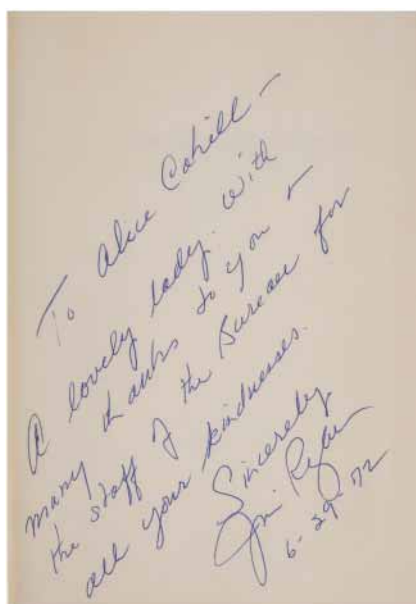 To Alice Cahill -
A lovely lady. With
many thanks to you &
the staff of the Surcease for
all your kindnesses.
Sincerely
Jim Ryun
6-29-72